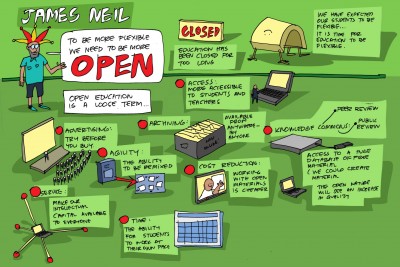 JAMES NEIL
TO BE MORE FLEXIBLE
WE NEED TO BE MORE
OPEN
OPEN EDUCATION
IS A LOOSE TERM...
CLOSED
EDUCATION HAS
BEEN CLOSED FOR
TOO LONG
WE HAVE EXPECTED
OUR STUDENTS TO BE
FLEXIBLE...
IT IS TIME FOR
EDUCATION TO BE
FLEXIBLE.
ACCESS:
MORE ACCESSIBLE
TO STUDENTS AND
TEACHERS
ADVERTISING:
TRY BEFORE
YOU BUY
ARCHIVING:
AVAILABLE
ANYWHERE...
ANYONE
KNOWLEDGE COMMONS
PEER REVIEW
PUBLIC
REVIEW
AGILITY:
THE ABILITY
TO BE REMIXED
COST REDUCTION:
WORKING
WITH OPEN
MATERIALS
IS CHEAPER
ACCESS TO A HUGE
DATABASE OF MORE
MATERIAL
(WE COULD CREATE
MATERIAL
THE OPEN NATURE
WILL SEE AN INCREASE
IN QUALITY
MAKE OUR
INTELLECTUAL
CAPITAL AVAILABLE
TO EVERYONE
TIME:
THE ABILITY
FOR STUDENTS
TO WORK AT
THEIR OWN PACE